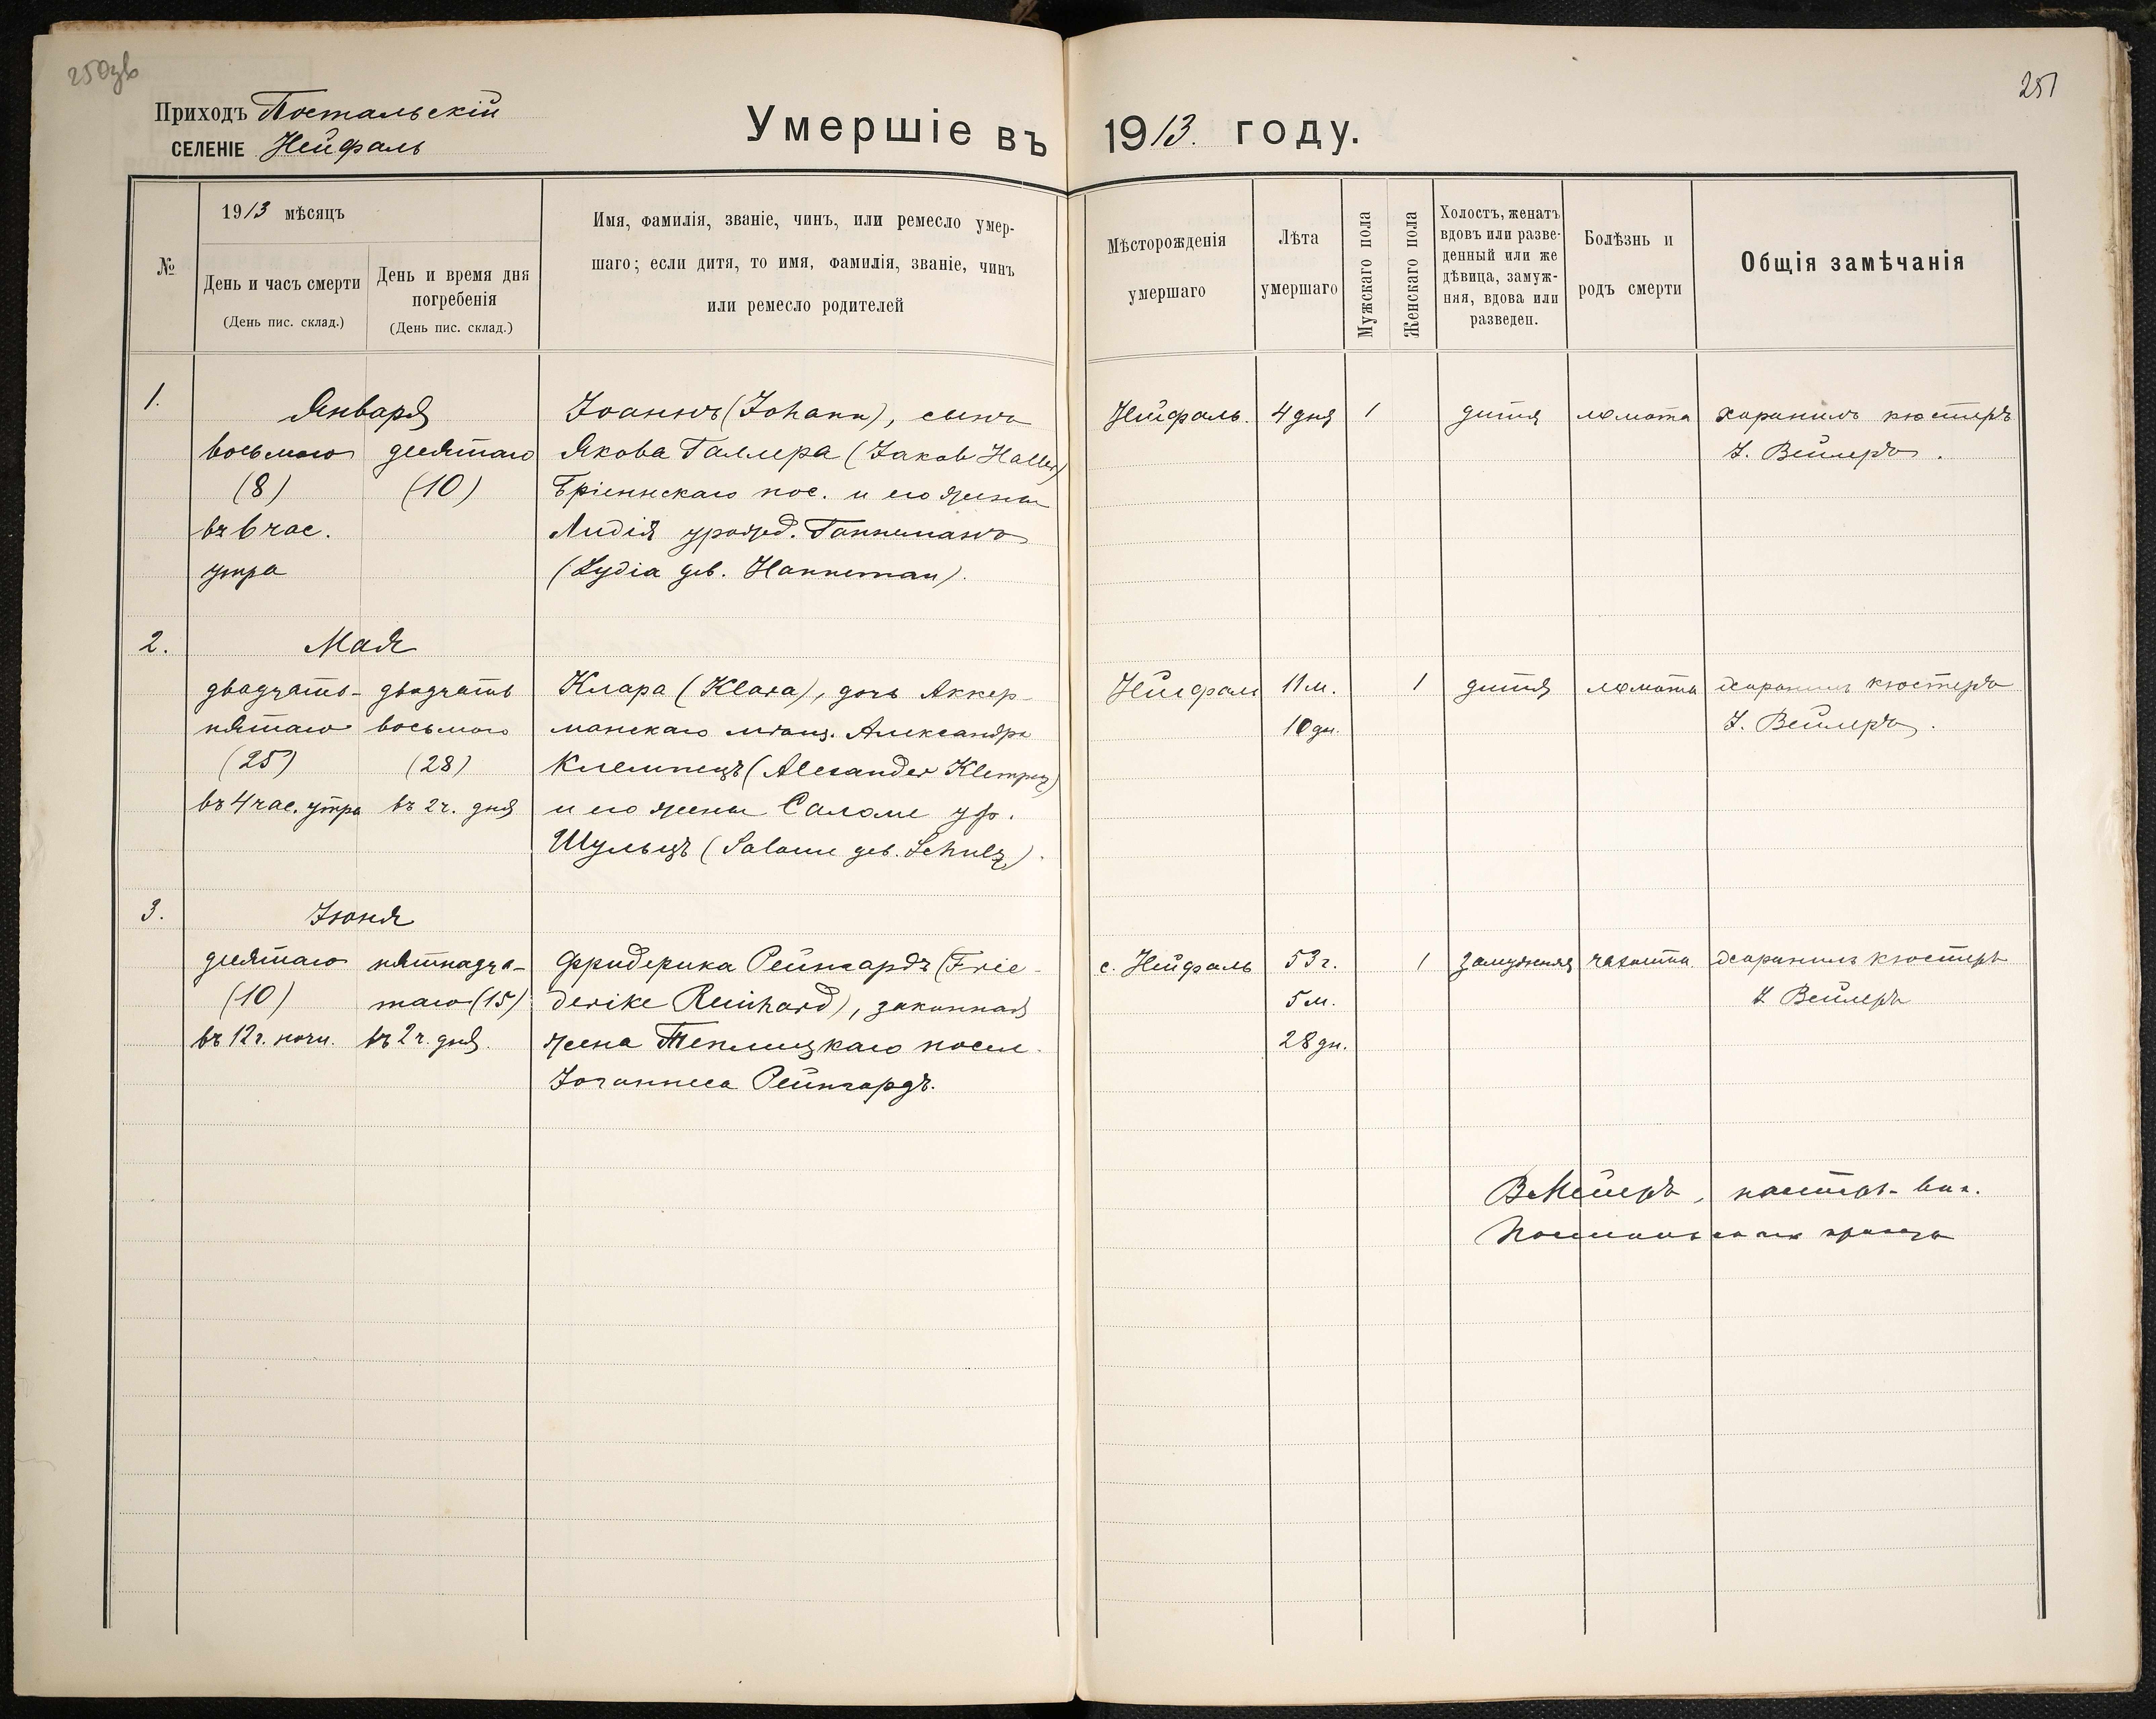 250зв
251
Приходъ Постальскій
СЕЛЕНІЕ Нейфаль
Умершіе въ 1913. году.
№
1913 мѣсяцъ
День и часъ смерти
(День пис. склад.)
День и время дня
погребенія
(День пис. склад.)
Имя, фамилія, званіе, чинъ, или ремесло умер-
шаго; если дитя, то имя, фамилія, званіе, чинъ
или ремесло родителей
Мѣсторожденія
умершаго
Лѣта
умершаго
Мужскаго пола
Женскаго пола
Холостъ, женатъ
вдовъ или разве-
денный или же
дѣвица, замуж-
няя, вдова или
разведен.
Болѣзнь и
родъ смерти
Общія замѣчанія
1.
Января
восьмого
(8)
въ 6 час.
утра
десятаго
(10)
Іоаннъ (Johann), сынъ
Якова Галлера (Jakob Haller)
Бріеннскаго пос. и его жены
Лидія урожд. Ганнеманъ
(Lydia geb. Hanneman).
Нейфаль.
4 дня
1
дитя
ломота
хоронилъ кюстеръ
І. Вейлеръ.
2.
Мая
двадцать-
пятаго
(25)
въ 4 час. утра
двадцать
восьмого
(28)
въ 2 ч. дня
Клара (Klara), дочь Аккер-
манскаго мѣщ. Александра
Клемпецъ (Alexander Klempez)
и его жены Саломе ур.
Шульцъ (Salome geb. Schulz).
Нейфаль
11 м.
10 дн.
1
дитя
ломота
хоронилъ кюстеръ
І. Вейлеръ.
3.
Іюня
десятаго
(10)
въ 12 ч. ночи.
пятнадца-
таго (15)
въ 2 ч. дня.
Фридерика Рейнгардъ (Frie-
derike Reinhard), законная
жена Теплицкаго посел.
Іоганнеса Рейнгардъ.
с. Нейфаль
53 г.
5 м.
28 дн.
1
замужняя
чахотка
хоронилъ кюстеръ
І. Вейлеръ
В Мейеръ, пасторъ-вик.
Постальскаго прихода